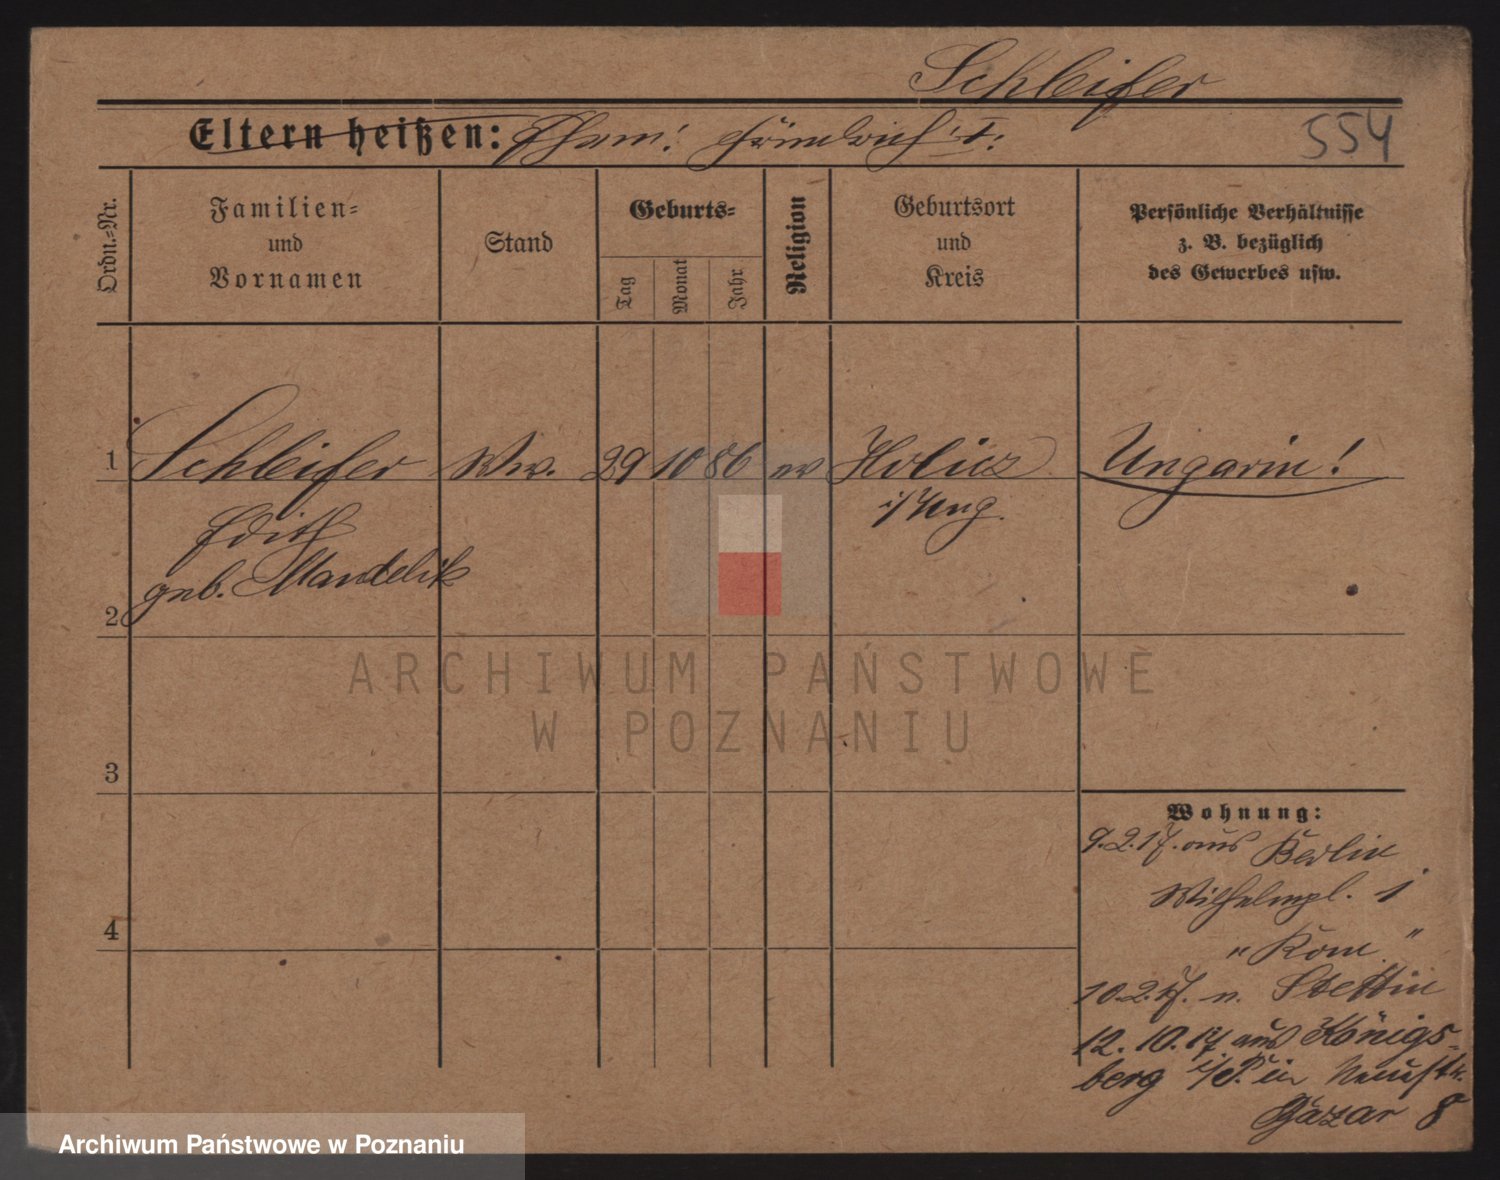 Schleifer
Eltern heißen: Eham: Friedrich I:
554
Ordn.-Nr.
Familien-
und
Vornamen
Stand
Geburts-
Tag
Monat
Jahr
Religion
Geburtsort
und
Kreis
Persönliche Verhältnisse
z. B. bezüglich
des Gewerbes usw.
1 Schleifer Ww. 29 10 86 ev Holicz Ungarin!
Edith i/Ung.
geb. Mandelik
2
3
4
ARCHIWUM PAŃSTWOWE
W POZNANIU
Wohnung:
9.2.17. aus Berlin
Wilhelmpl. 1
"Rom."
10.2.17. n. Stettin
12.10.17 aus Königs-
berg i/P. in Neuestr.
Bazar 8
Archiwum Państwowe w Poznaniu